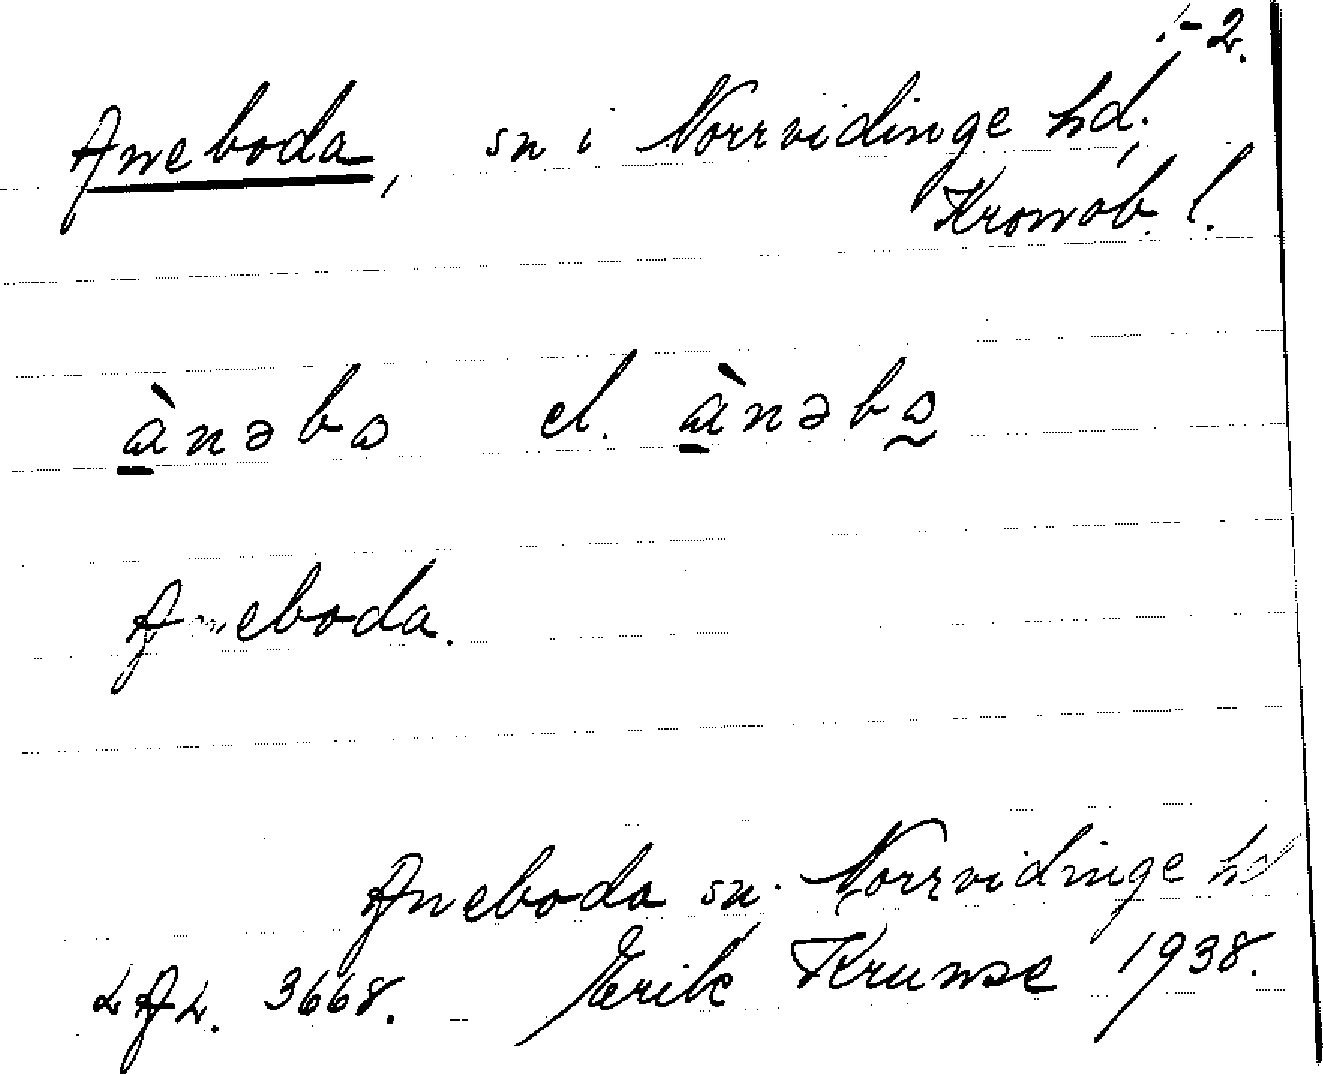 1-2.
Aneboda, sn i Norrvidinge hd,
Kronob. l.
ànəbɷ el. ànəbɷ
Aneboda.
Aneboda sn. Norrvidinge hd
LAL. 3668. Erik Krunse 1938.